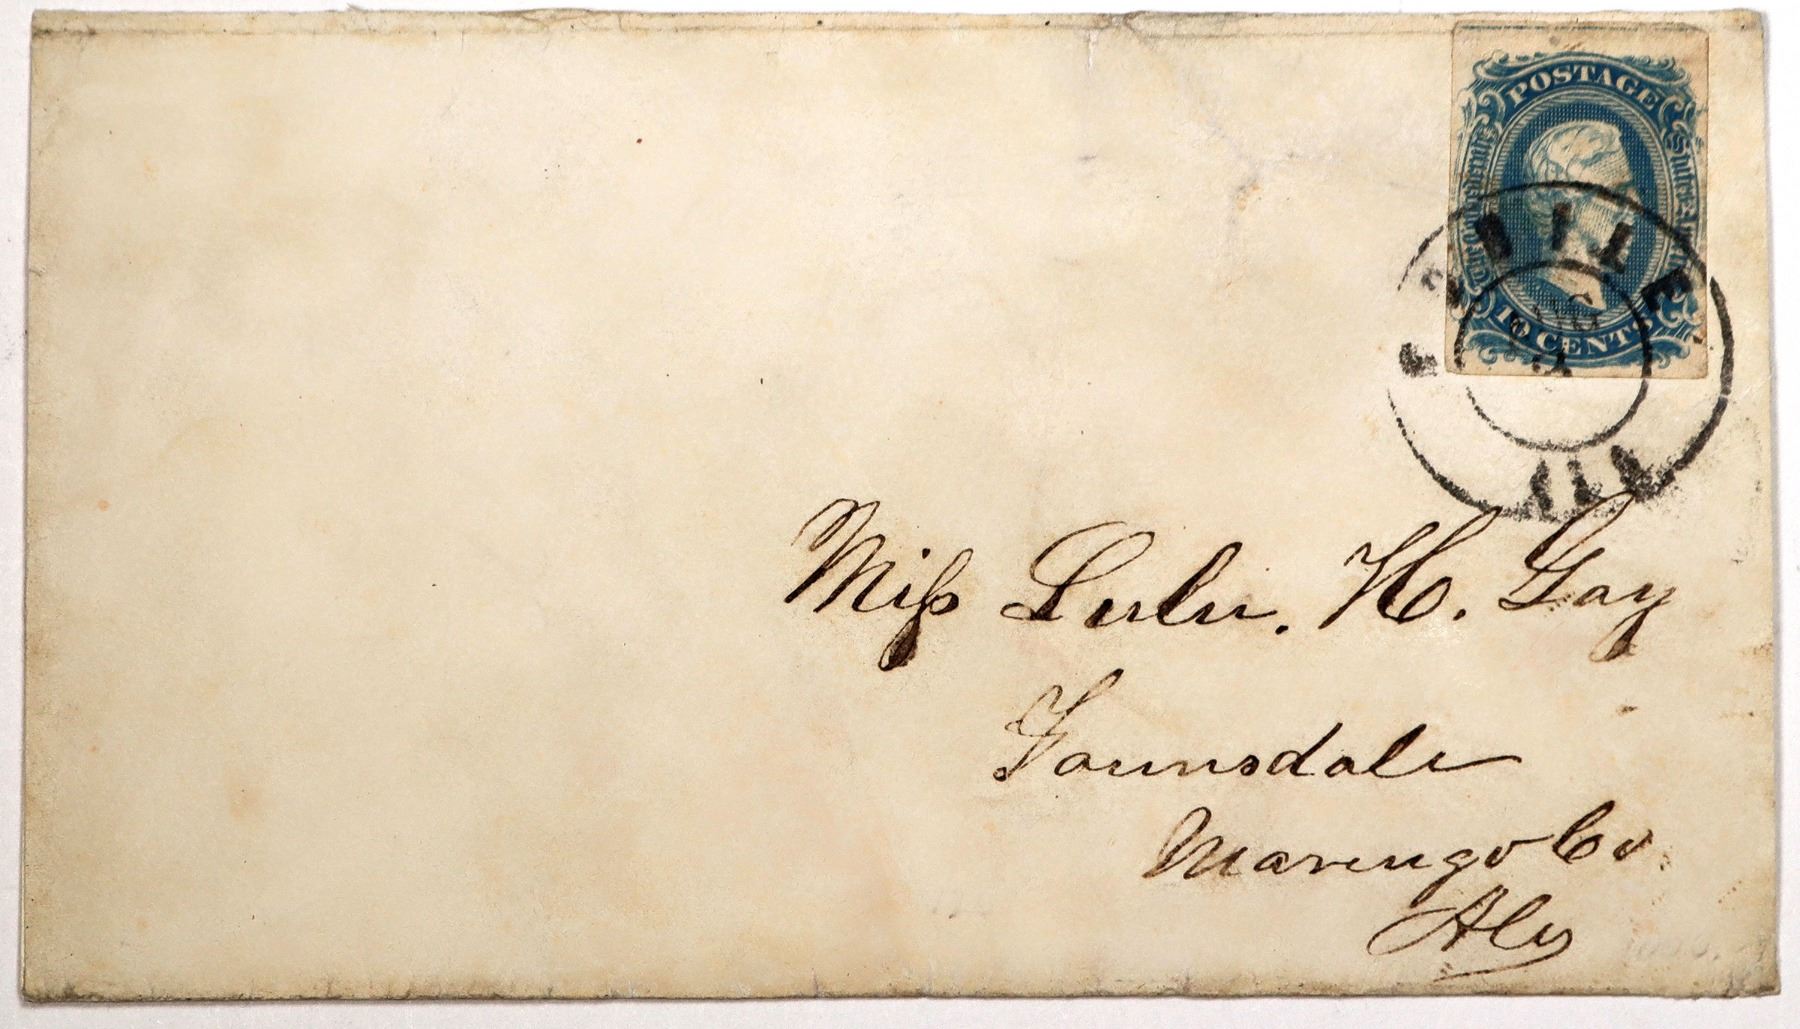 POSTAGE
Confederate
States
TEN CENTS
MOBILE
AUG
ALA
Miss Lulu. H. Gay
Faunsdale
Marengo Co
Ala